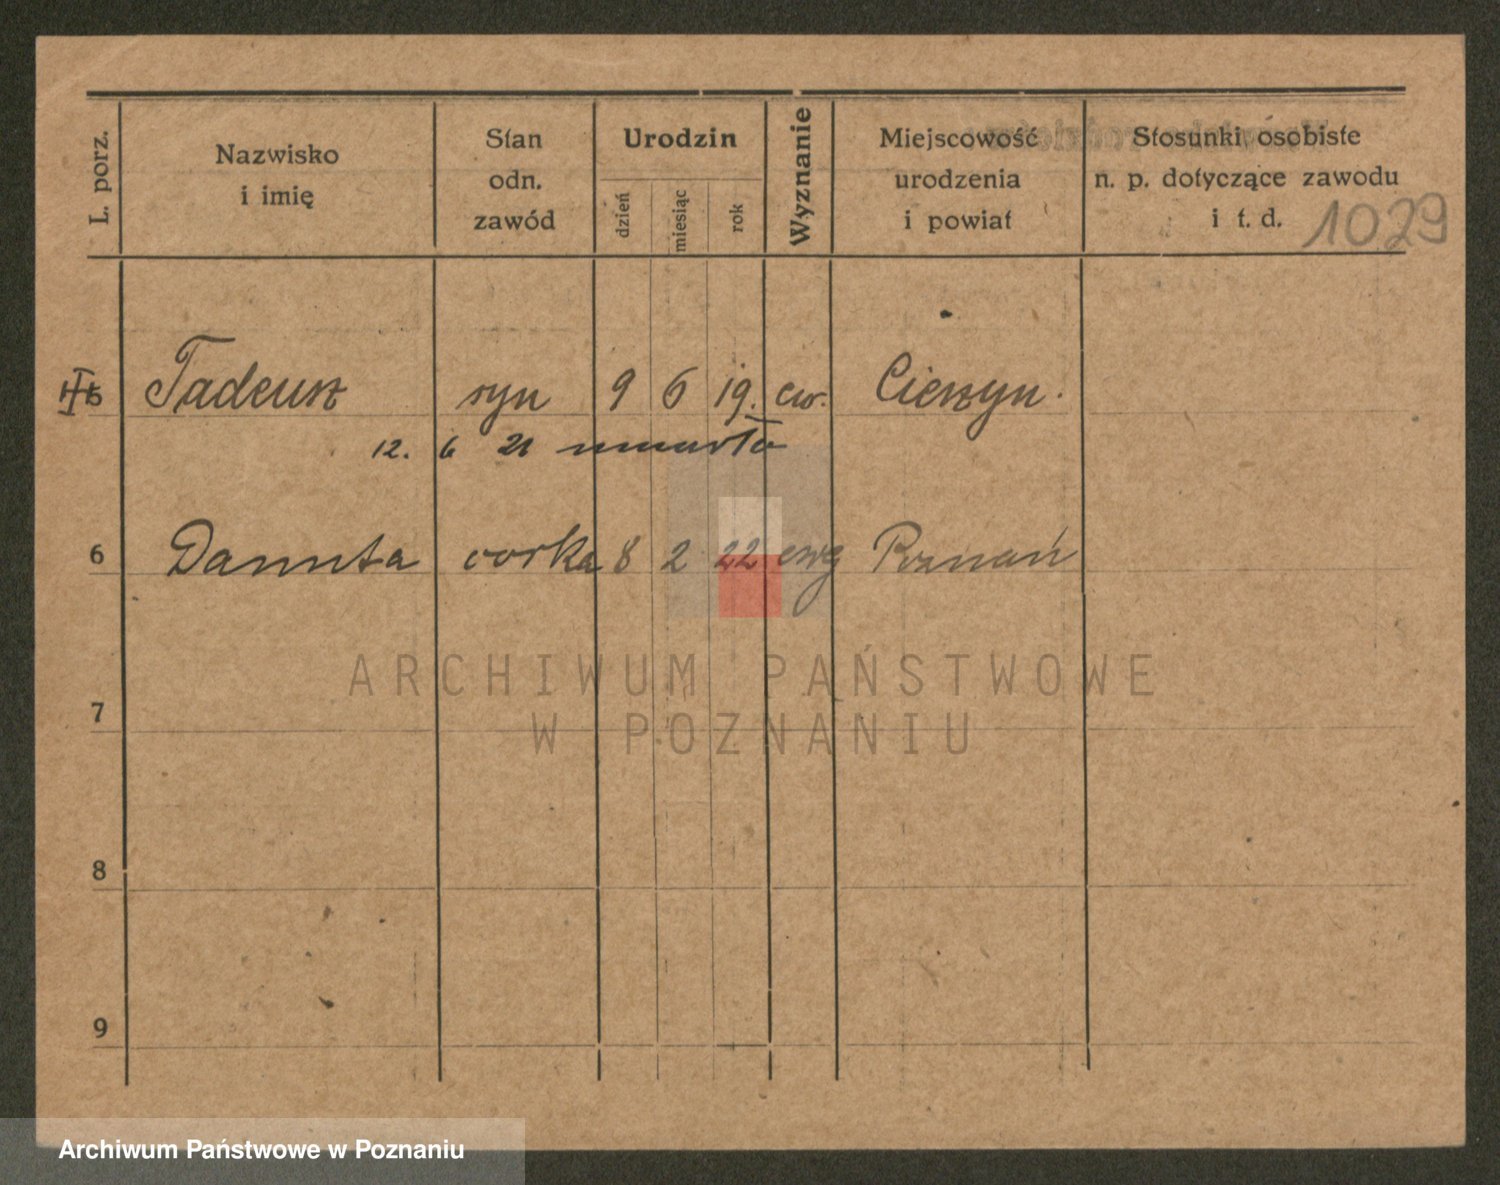 L. porz.
Nazwisko
i imię
Stan
odn.
zawód
Urodzin
dzień
miesiąc
rok
Wyznanie
Miejscowość
urodzenia
i powiat
Stosunki osobiste
n. p. dotyczące zawodu
i t. d.
1029
5 Tadeusz syn 9 6 19. ew. Cieszyn.
12. 6 21 umarła
6 Danuta corka 8 2 22 ewg Poznań
ARCHIWUM PAŃSTWOWE
W POZNANIU
7
8
9
Archiwum Państwowe w Poznaniu